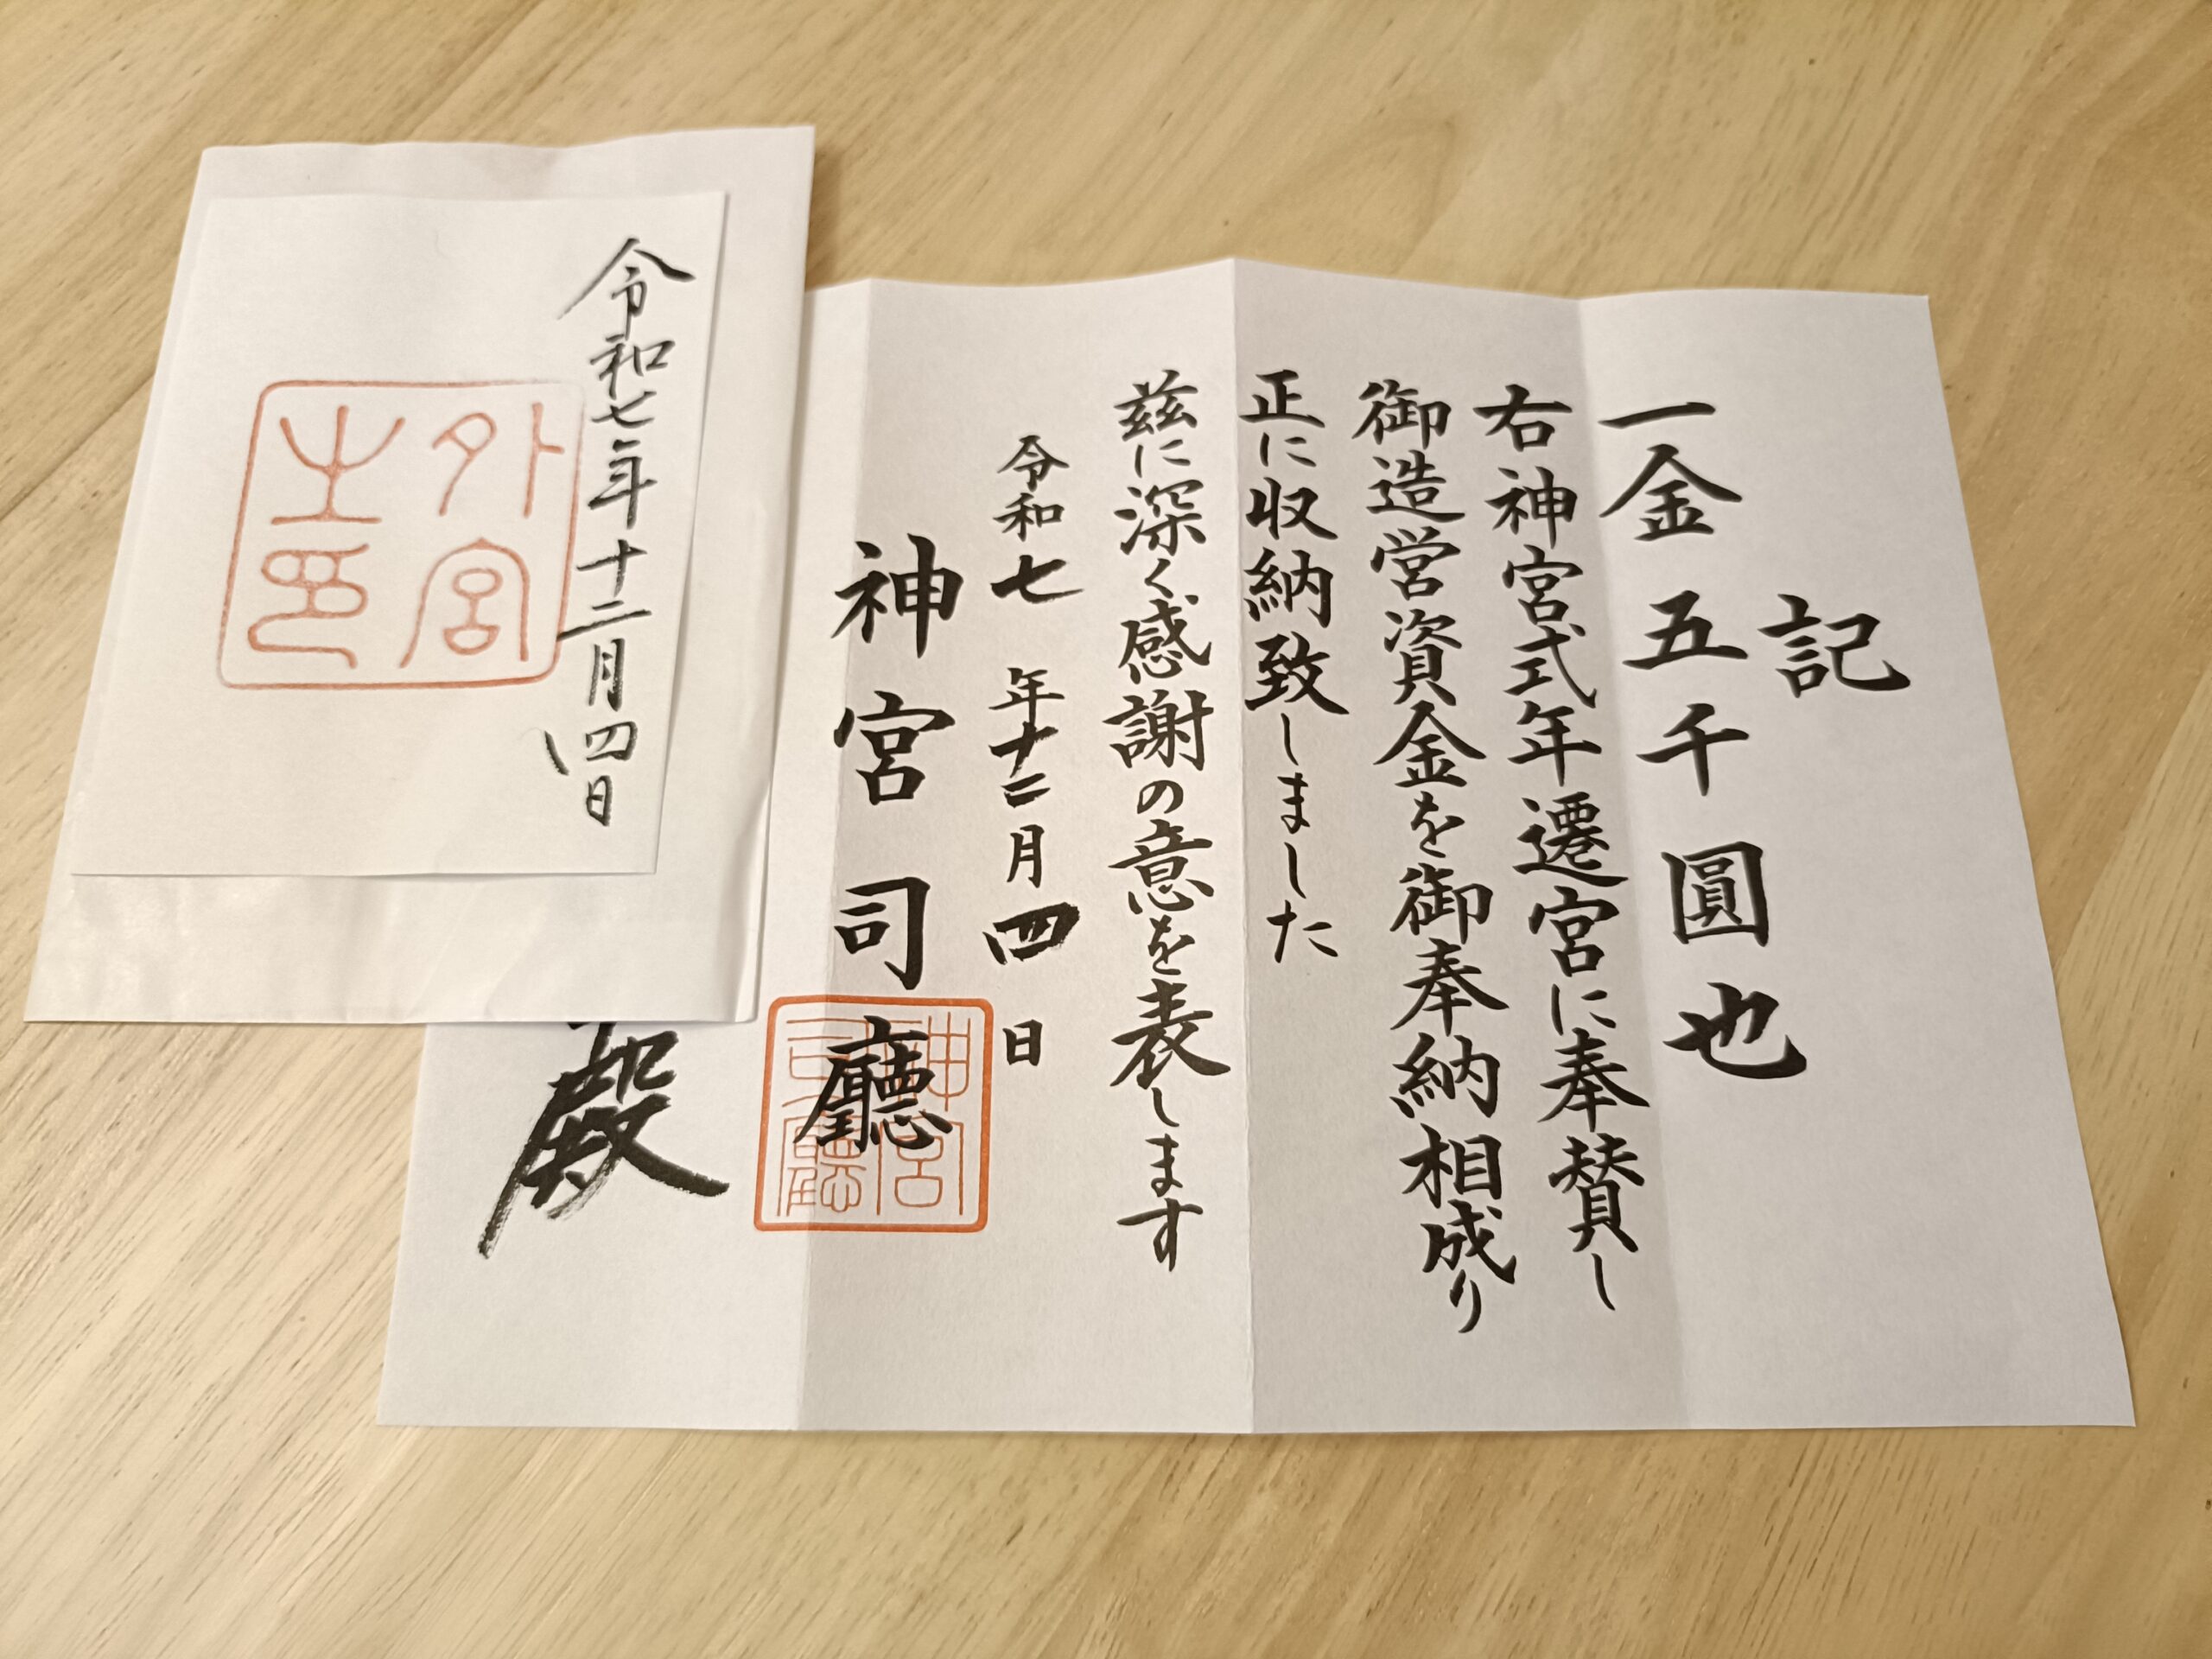 記
一金五千圓也
右神宮式年遷宮に奉賛し
御造営資金を御奉納相成り
正に収納致しました
茲に深く感謝の意を表します
令和七年十二月四日
神宮司廳
神宮
司廳
殿
令和七年十二月四日
外宮
之印